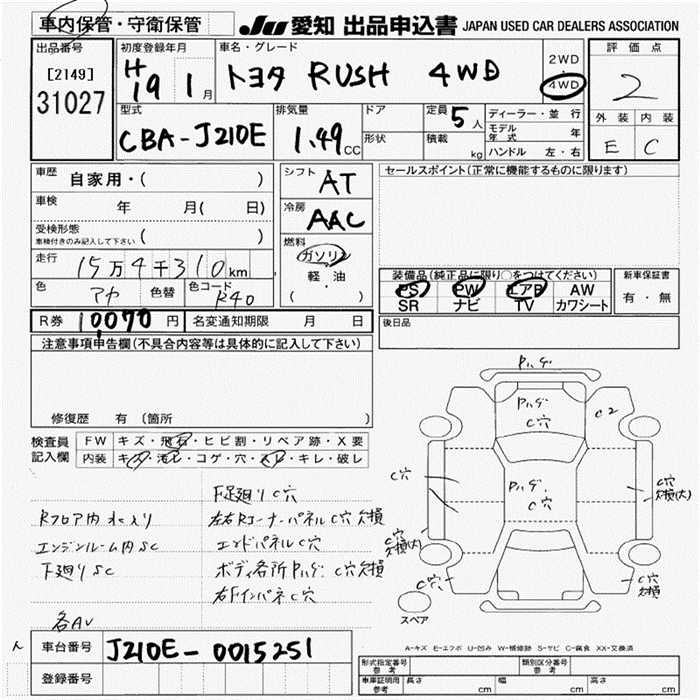 車内保管・守衛保管
JU 愛知 出品申込書 JAPAN USED CAR DEALERS ASSOCIATION
出品番号
[2149]
31027
初度登録年月
H19 1月
車名・グレード
トヨタ RUSH 4WD
2WD
・
4WD
評価点
2
外装 内装
E C
型式
CBA-J210E
排気量
1.49 CC
ドア
形状
定員 5人
積載 kg
ディーラー・並行
モデル年式 年
ハンドル 左・右
車歴 自家用・( )
車検 年 月( 日)
受検形態
車検付きのみ記入して下さい ( )
走行 15万4千310km
色 アカ 色替 色コード R40
シフト AT
冷房 AAC
燃料
ガソリン
軽・油
( )
セールスポイント(正常に機能するものに限ります)
装備品(純正品に限り○をつけてください)
PS PW エアB AW
SR ナビ TV カワシート
新車保証書
有・無
R券 10070円 名変通知期限 月 日
後日品
注意事項申告欄(不具合内容等は具体的に記入して下さい)
修復歴 有 (箇所
検査員記入欄
FW キズ・飛石・ヒビ割・リペア跡・X要
内装 キズ・汚レ・コゲ・穴・スレ・キレ・破レ
F足廻りC穴
Rフロア内 水入り 左右Rコーナーパネル C穴 欠損
エンジンルーム内SC エンドパネル C穴
下廻りSC ボディ各所 Pハゲ C穴 欠損
右Fインパネ C穴
各AV
Pハゲ
Pハゲ
C穴
C2
C穴
Pハゲ
C穴
C穴
欠損(大)
C穴
欠損(大)
C穴
C穴
欠損
スペア
A-キズ E-エクボ U-凹み W-補修跡 S-サビ C-腐食 XX-交換済
車台番号 J210E-0015251
登録番号
形式指定番号 参考
類別区分番号 参考
車庫証明用 参考 長さ cm 幅 cm 高さ cm